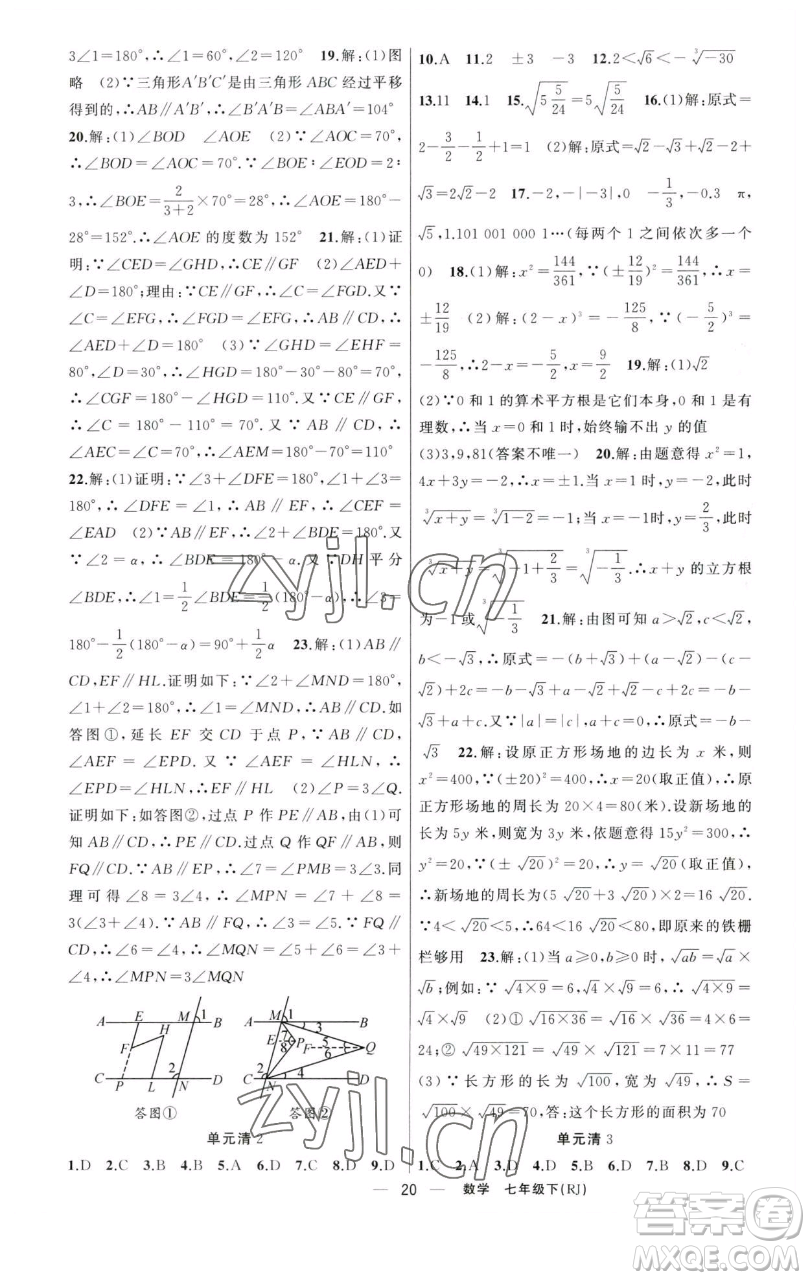 3∠1=180°,∴∠1=60°,∠2=120°　19.解:(1)图
略　(2)∵三角形A′B′C′是由三角形ABC经过平移
得到的,∴AB∥A′B′,∴∠B′A′C′=∠BAC,∠ABA′=104°
20.解:(1)∠BOD　∠AOE　(2)∵∠AOC=70°,
∴∠BOD=∠AOC=70°.∵∠BOE∶∠EOD=2∶
3,∴∠BOE=2/(3+2)×70°=28°,∴∠AOE=180°-
28°=152°.∴∠AOE的度数为152°　21.解:(1)证
明:∵∠CED=∠GHD,∴CE∥GF　(2)∠AED+
∠D=180°;理由:∵CE∥GF,∴∠C=∠FGD.又∵
∠C=∠EFG,∴∠FGD=∠EFG,∴AB∥CD,∴
∠AED+∠D=180°　(3)∵∠GHD=∠EHF=
80°,∠D=30°,∴∠HGD=180°-110°=70°,∴
∠CGF=180°-∠HGD=110°.又∵CE∥GF,∴
∠C=180°-110°=70°.又∵AB∥CD,∴
∠AEC=∠C=70°,∴∠AEM=180°-70°=110°
22.解:(1)证明:∵∠3+∠DFE=180°,∠1+∠3=
180°,∴∠DFE=∠1,∴AB∥EF,∴∠CEF=
∠EAD　(2)∵AB∥EF,∴∠2+∠BDE=180°.又
∵∠2=α,∴∠BDE=180°-α.又∵DH平分
∠BDE,∴∠1=1/2∠BDE=1/2(180°-α),∴∠3=
180°-1/2(180°-α)=90°+1/2α　23.解:(1)AB∥
CD,EF∥HL.证明如下:∵∠2+∠MND=180°,
∠1+∠2=180°,∴∠1=∠MND,∴AB∥CD.如
答图①,延长EF交CD于点P,∵AB∥CD,∴
∠AEF=∠EPD.又∵∠AEF=∠HLN,∴
∠EPD=∠HLN,∴EF∥HL　(2)∠P=3∠Q.
证明如下:如答图②,过点P作PE∥AB,由(1)可
知AB∥CD,∴PE∥CD.过点Q作QF∥AB,则
FQ∥CD.∵AB∥EP,∴∠7=∠PMB=3∠3.同
理可得∠8=3∠4,∴∠MPN=∠7+∠8=
3(∠3+∠4).∵AB∥FQ,∴∠5=∠3.∵CD∥
FQ,∴∠6=∠4,∴∠MQN=∠5+∠6=∠3+
∠4,∴∠MPN=3∠MQN
A E M 1 B
H
F
2
C P L N D
答图①
A M 1 3 B
E 7 P F 5 Q
8 6
2 4
C N D
答图②
单元清2
1.D　2.C　3.B　4.B　5.A　6.C　7.C　8.D　9.D
10.A　11.2　±3　-3　12.2<√6<-∛-30
13.11　14.1　15.√(5 5/24)=5√(5/24)　16.(1)解:原式=
2-3/2-1/2+1=1　(2)解:原式=√2-√3+√2-2+
√3=2√2-2　17.-2,-|-3|,0　-1/3,-0.3　π,
√5,1.101 001 000 1…(每两个1之间依次多一个
0)　18.(1)解:x²=144/361,∵(±12/19)²=144/361,∴x=
±12/19　(2)解:(2-x)³=-125/8,∵(-5/2)³=
-125/8,∴2-x=-5/2,x=9/2　19.解:(1)√2
(2)∵0和1的算术平方根是它们本身,0和1是有
理数,∴当x=0和1时,始终输不出y的值
(3)3,9,81(答案不唯一)　20.解:由题意得x²=1,
4x+3y=2,∴x=±1.当x=1时,y=-2/3,此时
∛x+y=∛1-2=-1;当x=-1时,y=2,此时
∛x+y=∛-1+2/3=∛-1/3.∴x+y的立方根
为-1或∛-1/3　21.解:由图可知a>√2,c<√2,
b<-√3,∴原式=-(b+√3)+(a-√2)-(c-√2)=-b-
√3+a+c.又∵|a|=|c|,∴原式=-b-
√3　22.解:设原正方形场地的边长为x米,则
x²=400,∵(±20)²=400,∴x=20(取正值),∴原
正方形场地的周长为20×4=80(米).设新场地的
长为5y米,则宽为3y米,依题意得15y²=300,∴
y²=20,∵(±√20)²=20,∴y=√20(取正值),
∴新场地的周长为(5√20+3√20)×2=16√20.
∵4<√20<5,∴64<16√20<80,即原来的铁栅
栏够用　23.解:(1)当a≥0,b≥0时,√ab=√a×
√b;例如:∵√4×9=√4×√9,∴√4×9=
√4×√9　(2)①√16×36=√16×√36=4×6=
24;②√49×121=√49×√121=7×11=77
(3)∵长方形的长为√100,宽为√49,∴S=
√100×√49=10×7=70,答:这个长方形的面积为70
单元清3
1.C　2.A　3.C　4.D　5.D　6.A　7.B　8.D　9.C
20　数学　七年级下(RJ)
zyjl.cn
zyjl.cn
答案卷
MXQE.COM